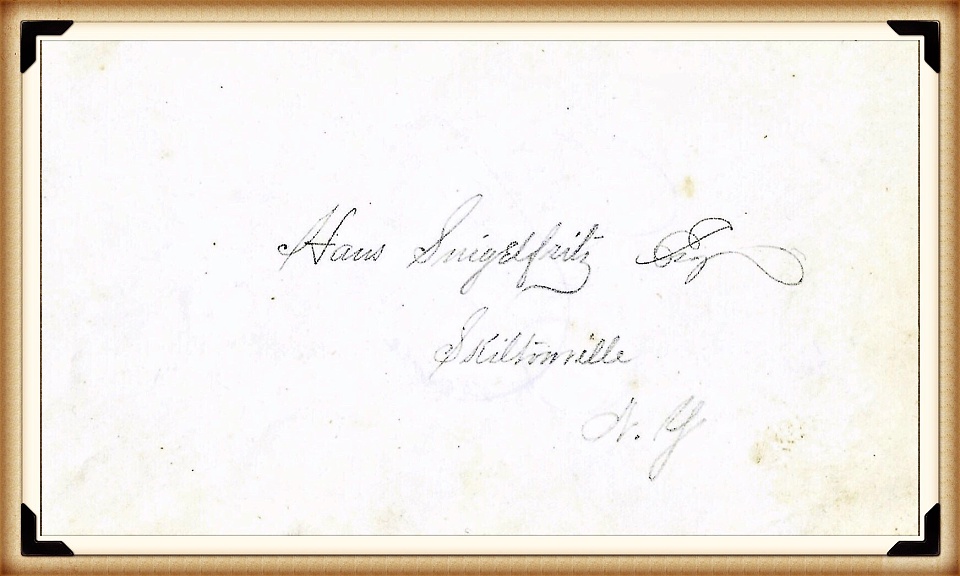 Hans Snigelfritz Esq
Skiltonville
N. Y